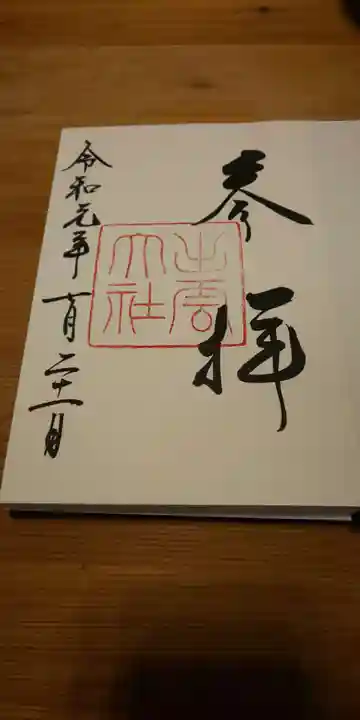 参拝
出雲
大社
令和元年 十月二十一日